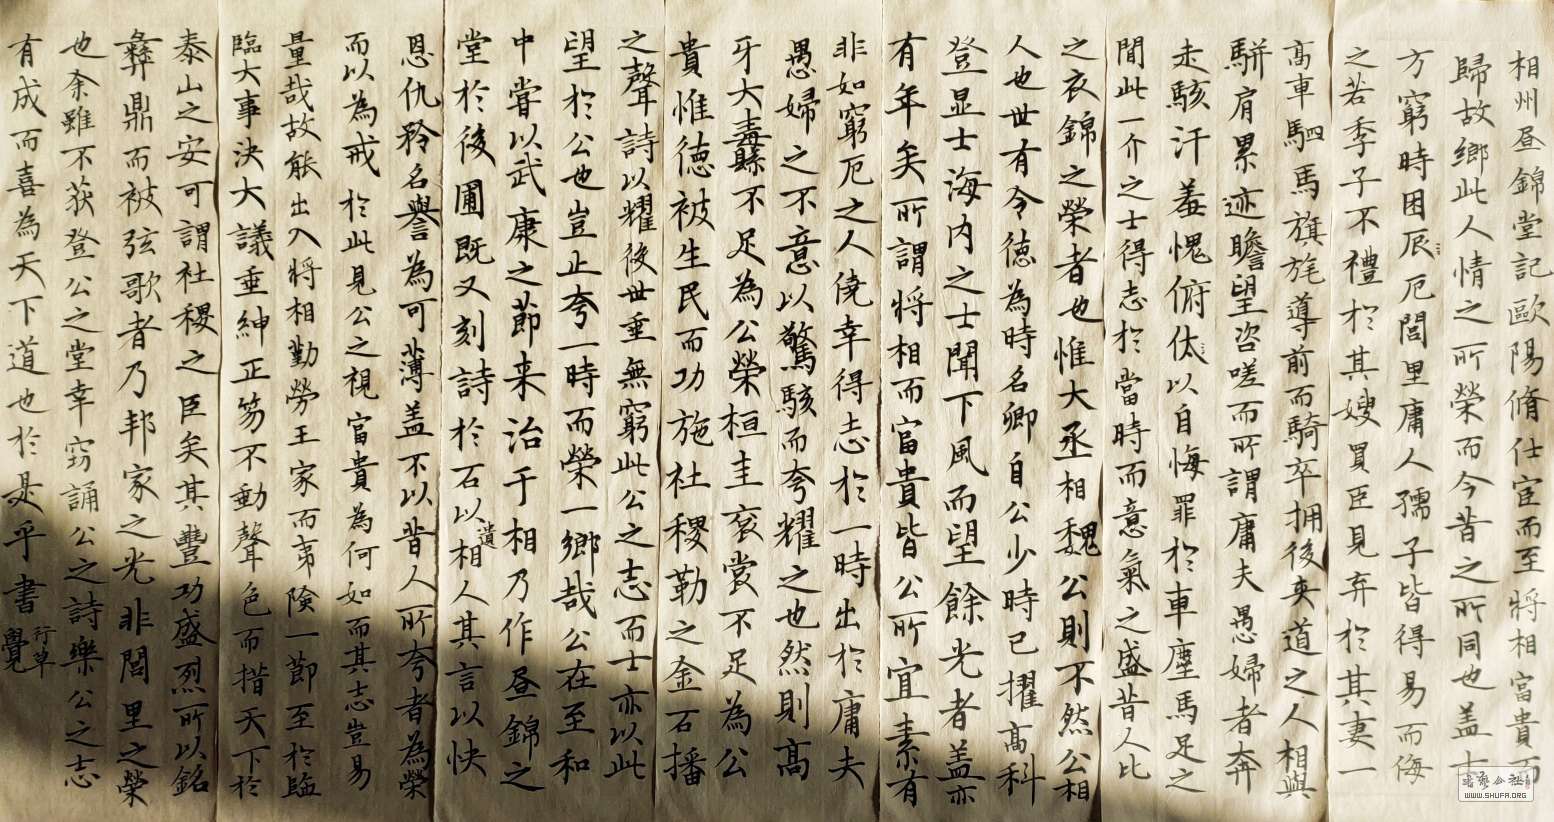 相州昼錦堂記歐陽脩仕宦而至將相富貴而
歸故鄉此人情之所榮而今昔之所同也盖士
方窮時困辰厄閭里庸人孺子皆得易而侮
之若季子不禮於其嫂買臣見弃於其妻一
高車駟馬旗旄導前而騎卒拥後夾道之人相與
駢肩累迹瞻望咨嗟而所謂庸夫愚婦者奔
走駭汗羞愧俯伏以自悔罪於車塵馬足之
間此一介之士得志於當時而意氣之盛昔人比
之衣錦之榮者也惟大丞相魏公則不然公相
人也世有令德為時名卿自公少時已擢高科
登显士海内之士聞下風而望餘光者盖亦
有年矣所謂將相而富貴皆公所宜素有
非如窮厄之人僥幸得志於一時出於庸夫
愚婦之不意以驚駭而夸耀之也然則高
牙大纛不足為公榮桓圭袞裳不足為公
貴惟德被生民而功施社稷勒之金石播
之聲詩以耀後世垂無窮此公之志而士亦以此
望於公也豈止夸一時而榮一鄉哉公在至和
中嘗以武康之節来治于相乃作昼錦之
堂於後圃既又刻詩於石以遺相人其言以快
恩仇矜名譽為可薄盖不以昔人所夸者為榮
而以為戒於此見公之視富貴為何如而其志豈易
量哉故能出入將相勤勞王家而夷險一節至於臨
臨大事決大議垂紳正笏不動聲色而措天下於
泰山之安可謂社稷之臣矣其豐功盛烈所以銘
彝鼎而被弦歌者乃邦家之光非閭里之榮
也余雖不获登公之堂幸窃誦公之詩樂公之志
有成而喜為天下道也於是乎書
行草
覺
WWW.SHUFA.ORG